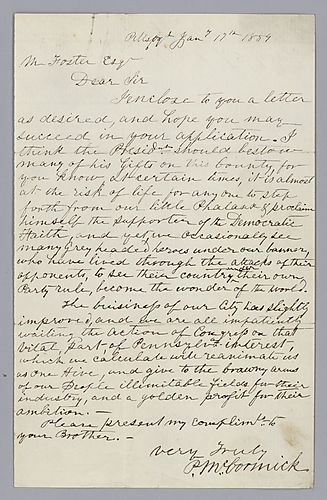 Pittsbg't Jany 17th 1859
Mr Foster Esqr
Dear Sir
I enclose to you a letter
as desired, and hope you may
succeed in your application. I
think the Presidt should bestow
many of his gifts on this county, for
you know, at certain times, it is almost
at the risk of life for any one to step
forth from our little Phalanx & proclaim
himself the supporter of the Democratic
Faith, and yet, we ocasionaly see
many grey headed heroes under our banner,
who have lived through the attacks of their
opponents, to see their country under their own
Party rule, become the wonder of the world.
The buisiness of our City has slightly
improved, and we are all impatiently
waiting the action of Congress on that
vital, part of Pennsylva Interest,
which we calculate will reanimate us
as One Hive, and give to the brawny arms
of our People illimitable fields for their
industry, and a golden profit for their
ambition. —
Please present my complimts to
your Brother. —
Very Truly
P. McCormick